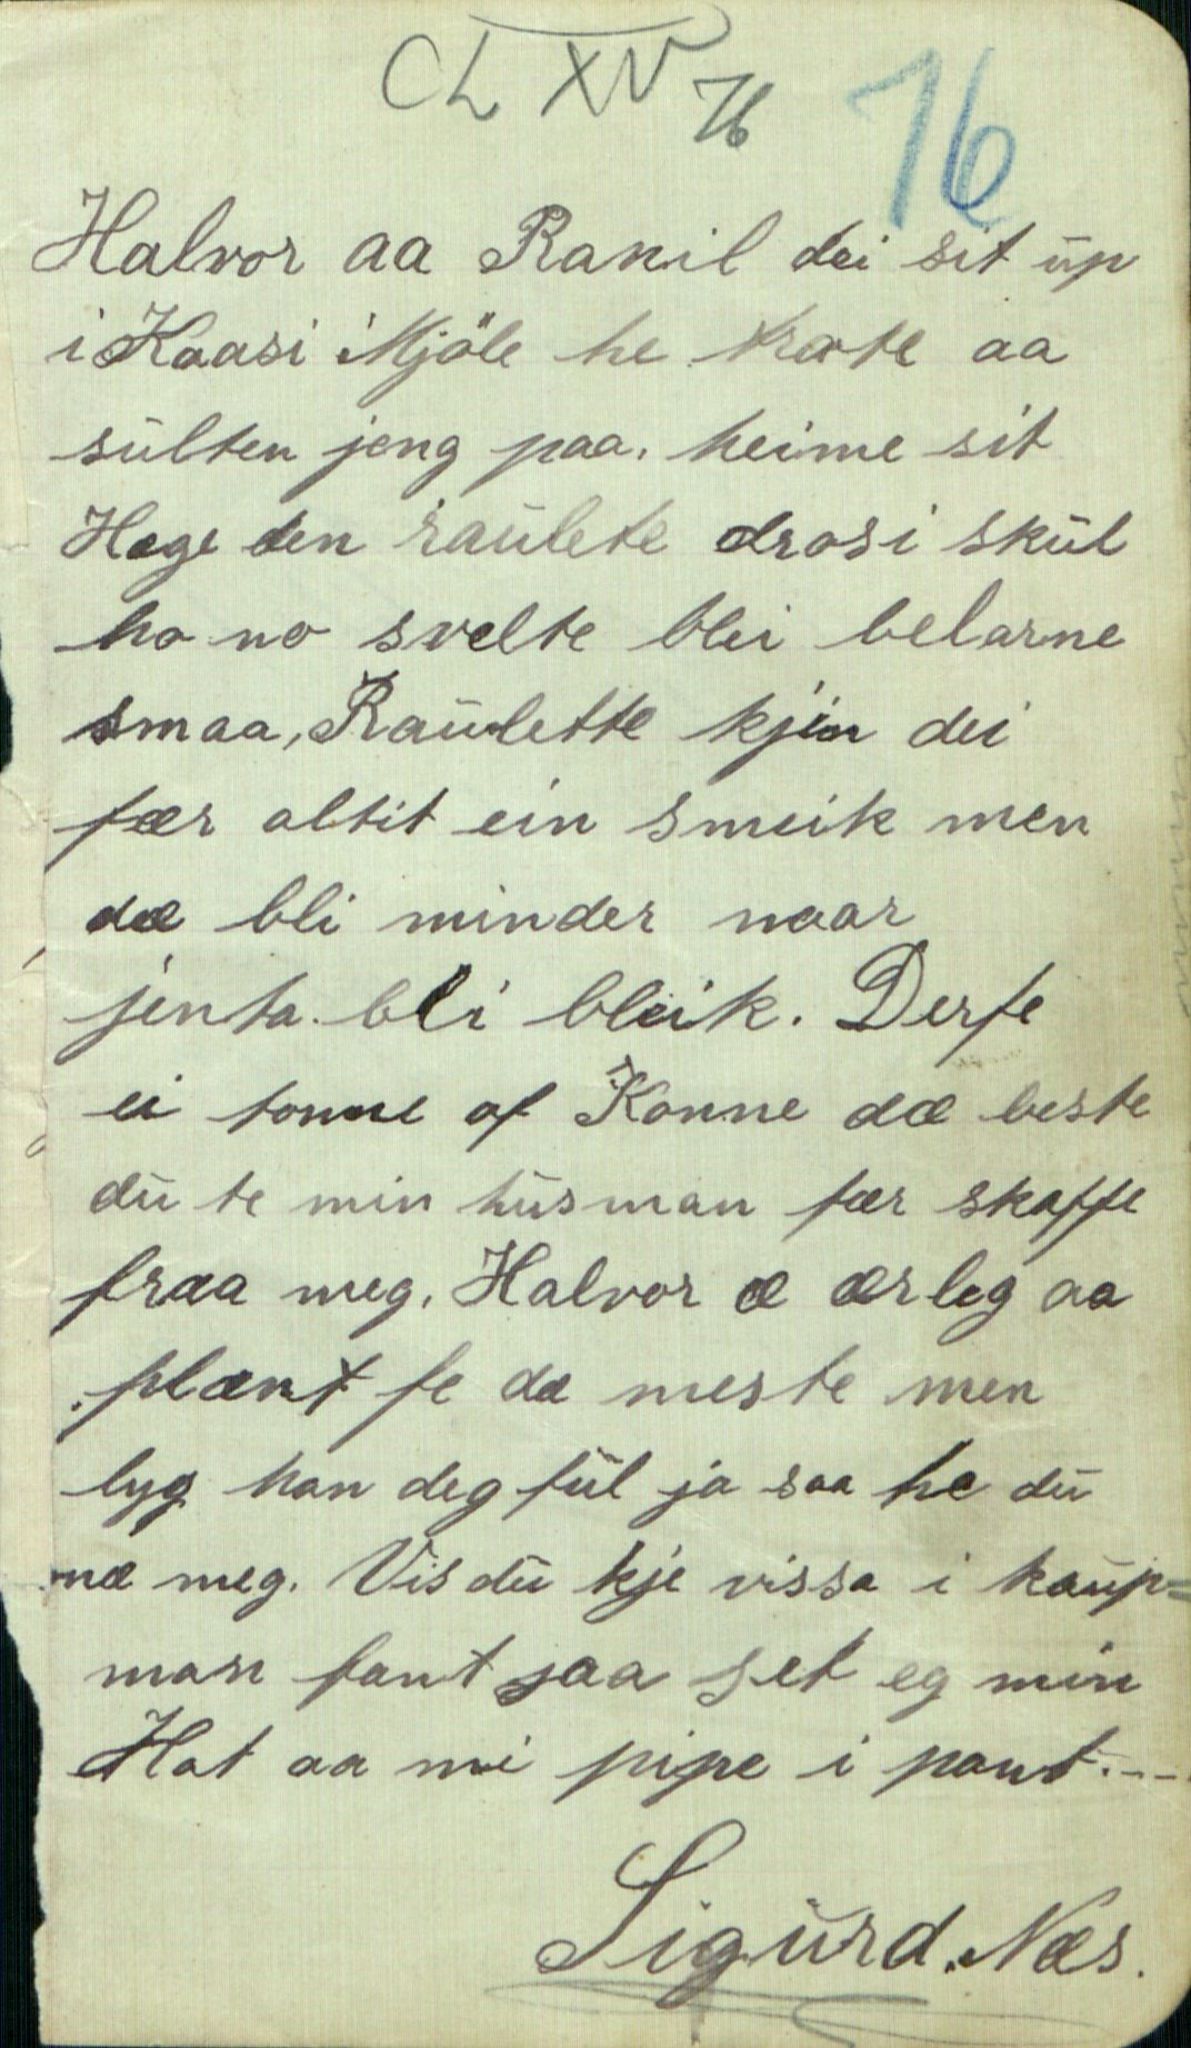 CL XV 76 76
Halvor aa Ranil dei sit üp
i Kaasi Mjöle he trøte aa
sülten jeng paa. heime sit
Hage den raülete drosi skül
ho no svelte blei belarne
smaa, Raülette kjin dei
fær altit ein smeik men
dæ bli minder naar
jenta bli bleik. Derfe
ei tonne af Konne dæ beste
dü te min hüsman fær skaffe
fraa meg. Halvor æ ærleg aa
plent fe dæ meste men
lyg han deg fül ja saa he dü
mæ meg. Vis dü kje vissa i kaüp=
man fant saa set eg min
Hat aa mi pipe i pant.---
Sigürd. Næs.